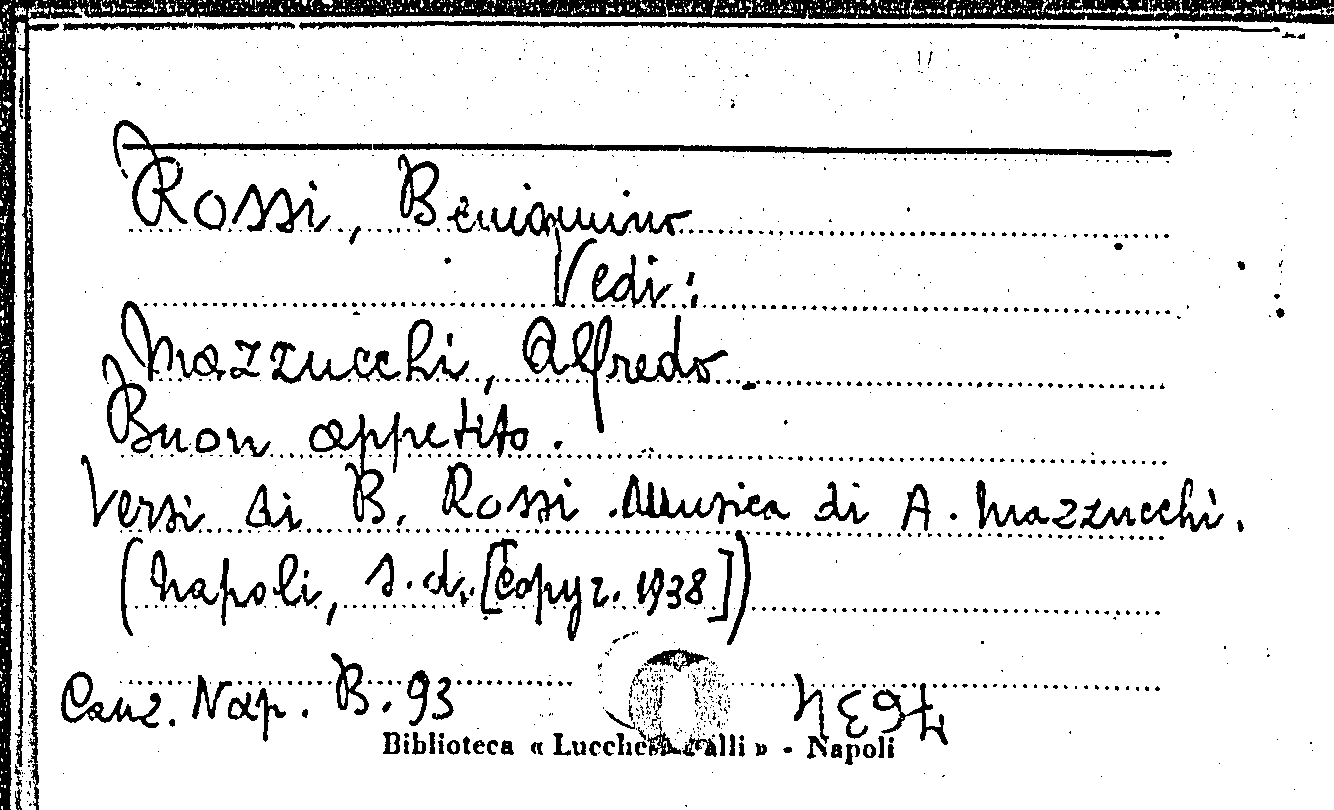 Rossi, Beniamino
Vedi:
Mazzucchi, Alfredo.
Buon appetito.
Versi di B. Rossi. Musica di A. Mazzucchi.
(Napoli, s.d. [Copyr. 1938])
Canz. Nap. B. 93
Biblioteca « Lucchesi Palli » - Napoli